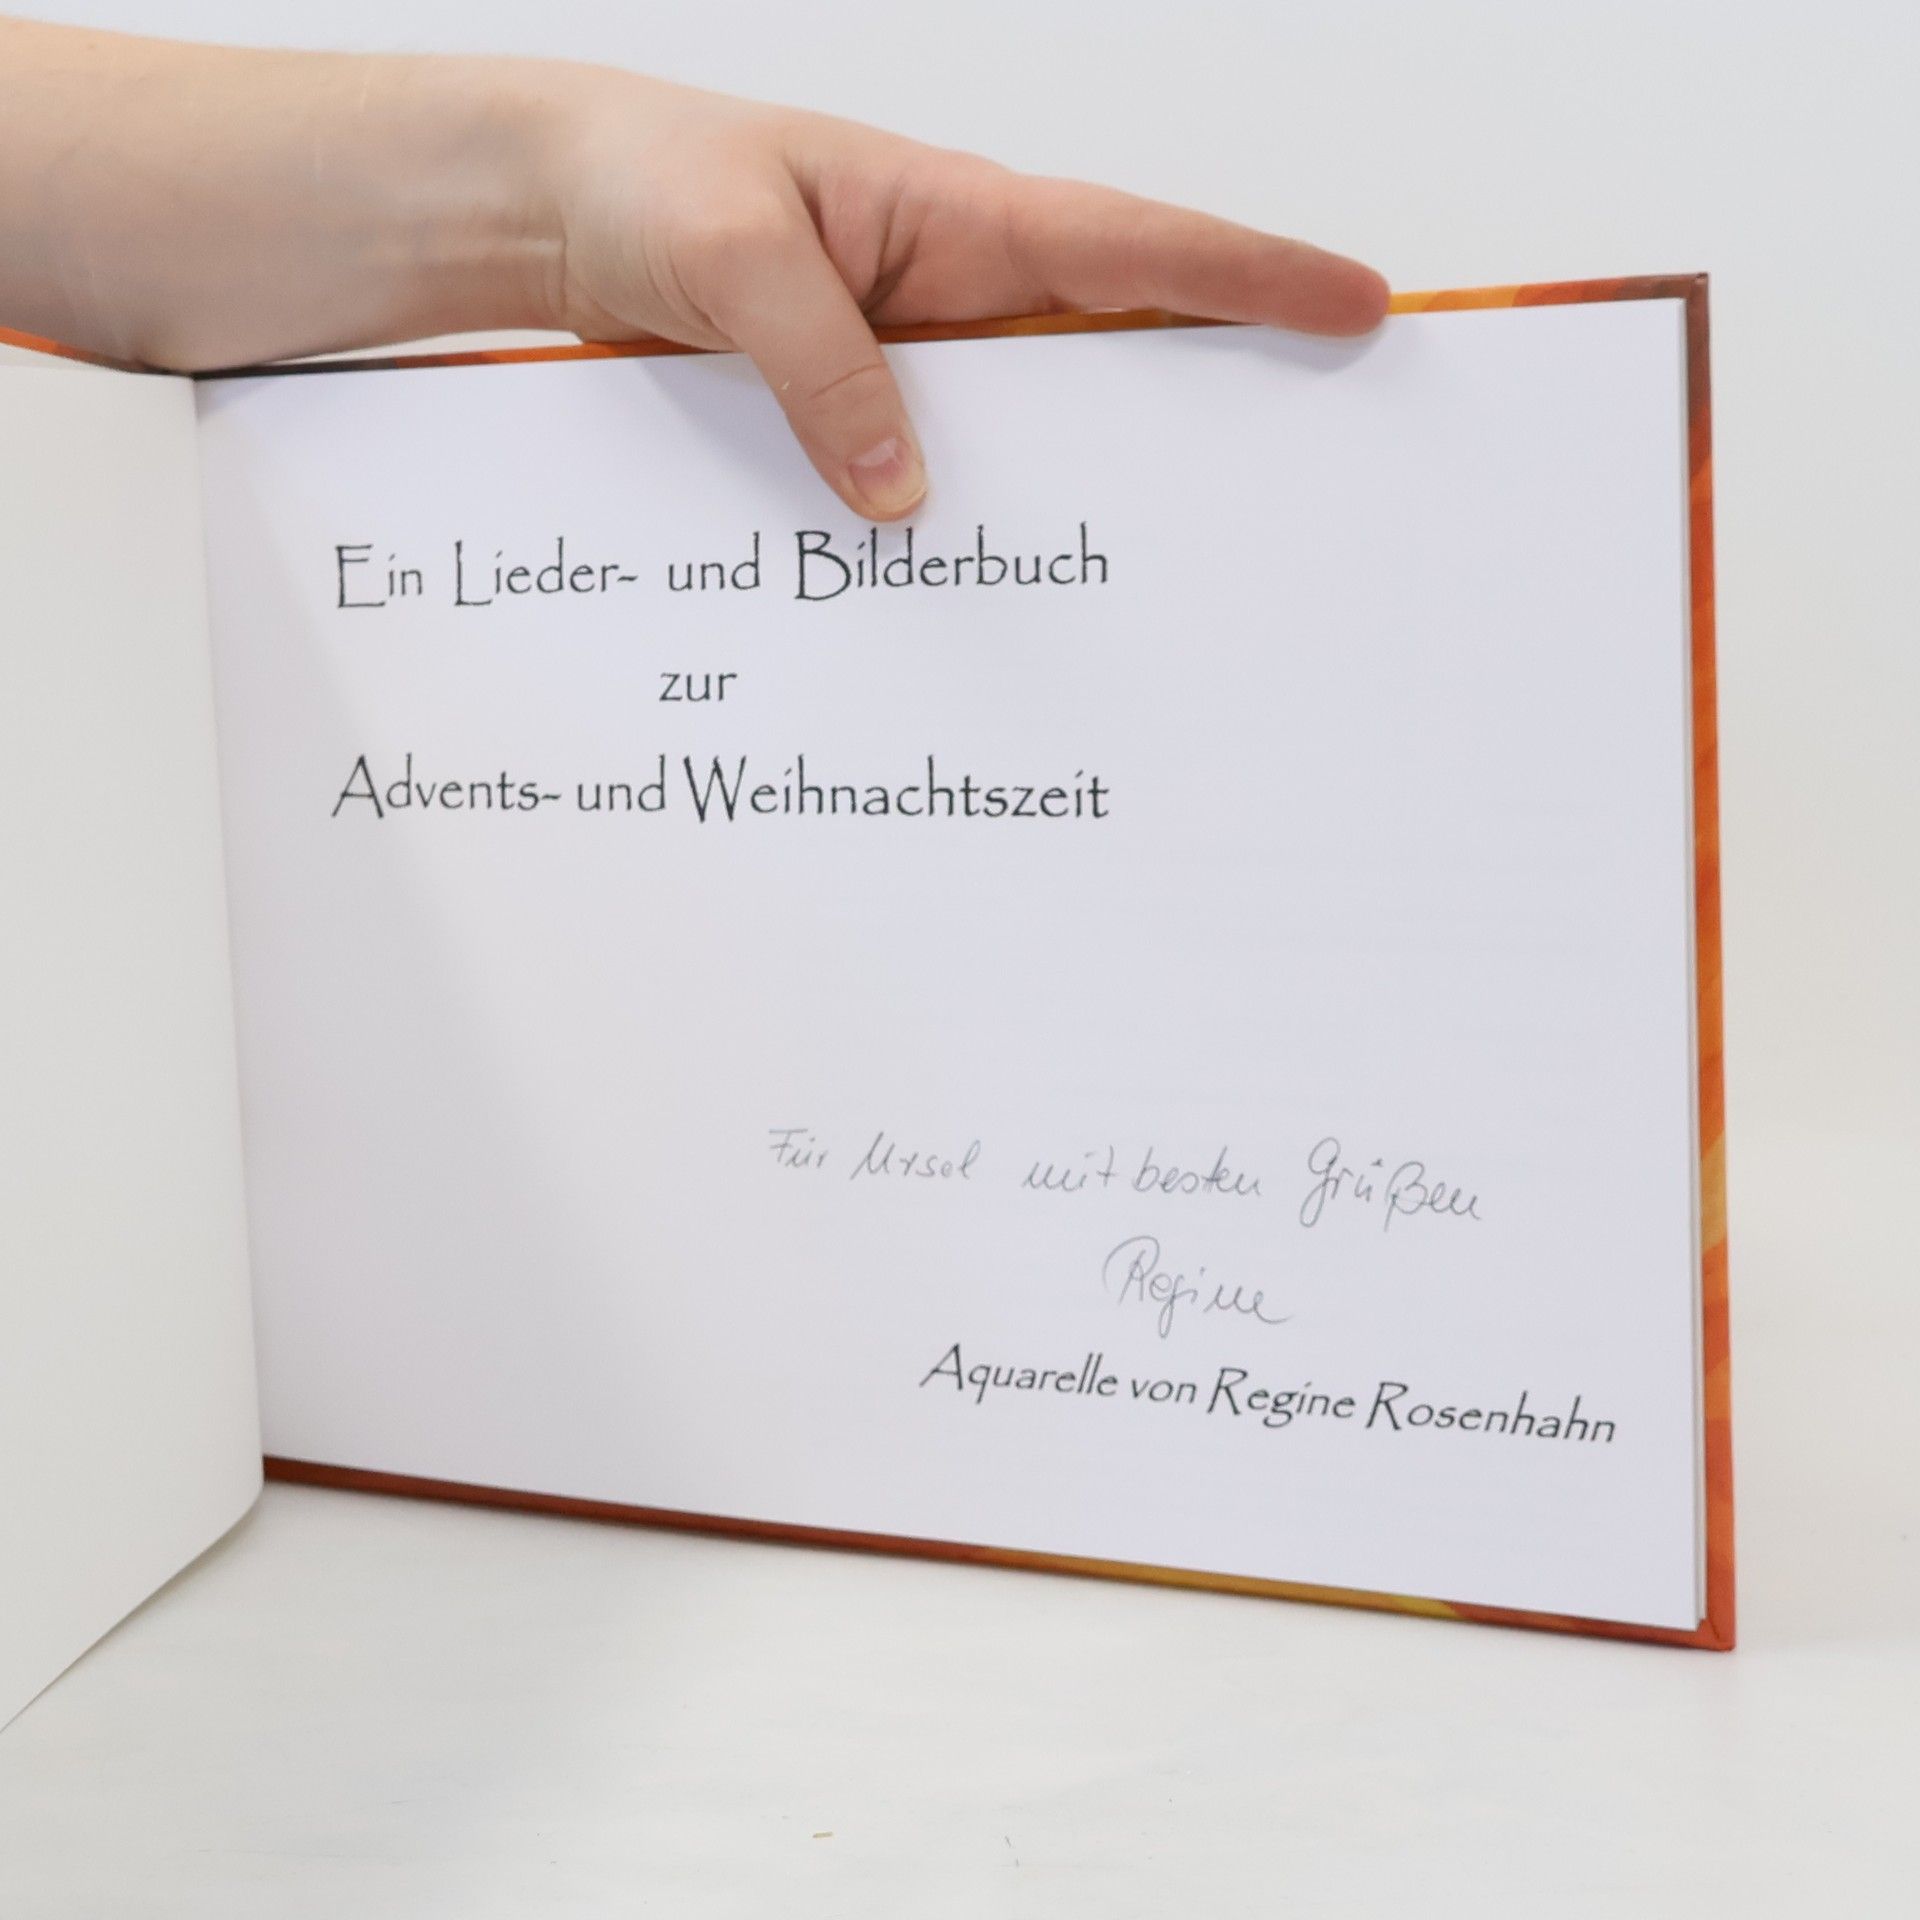 Ein Lieder- und Bilderbuch
zur
Advents- und Weihnachtszeit
Für Ursel mit besten Grüßen
Regine
Aquarelle von Regine Rosenhahn